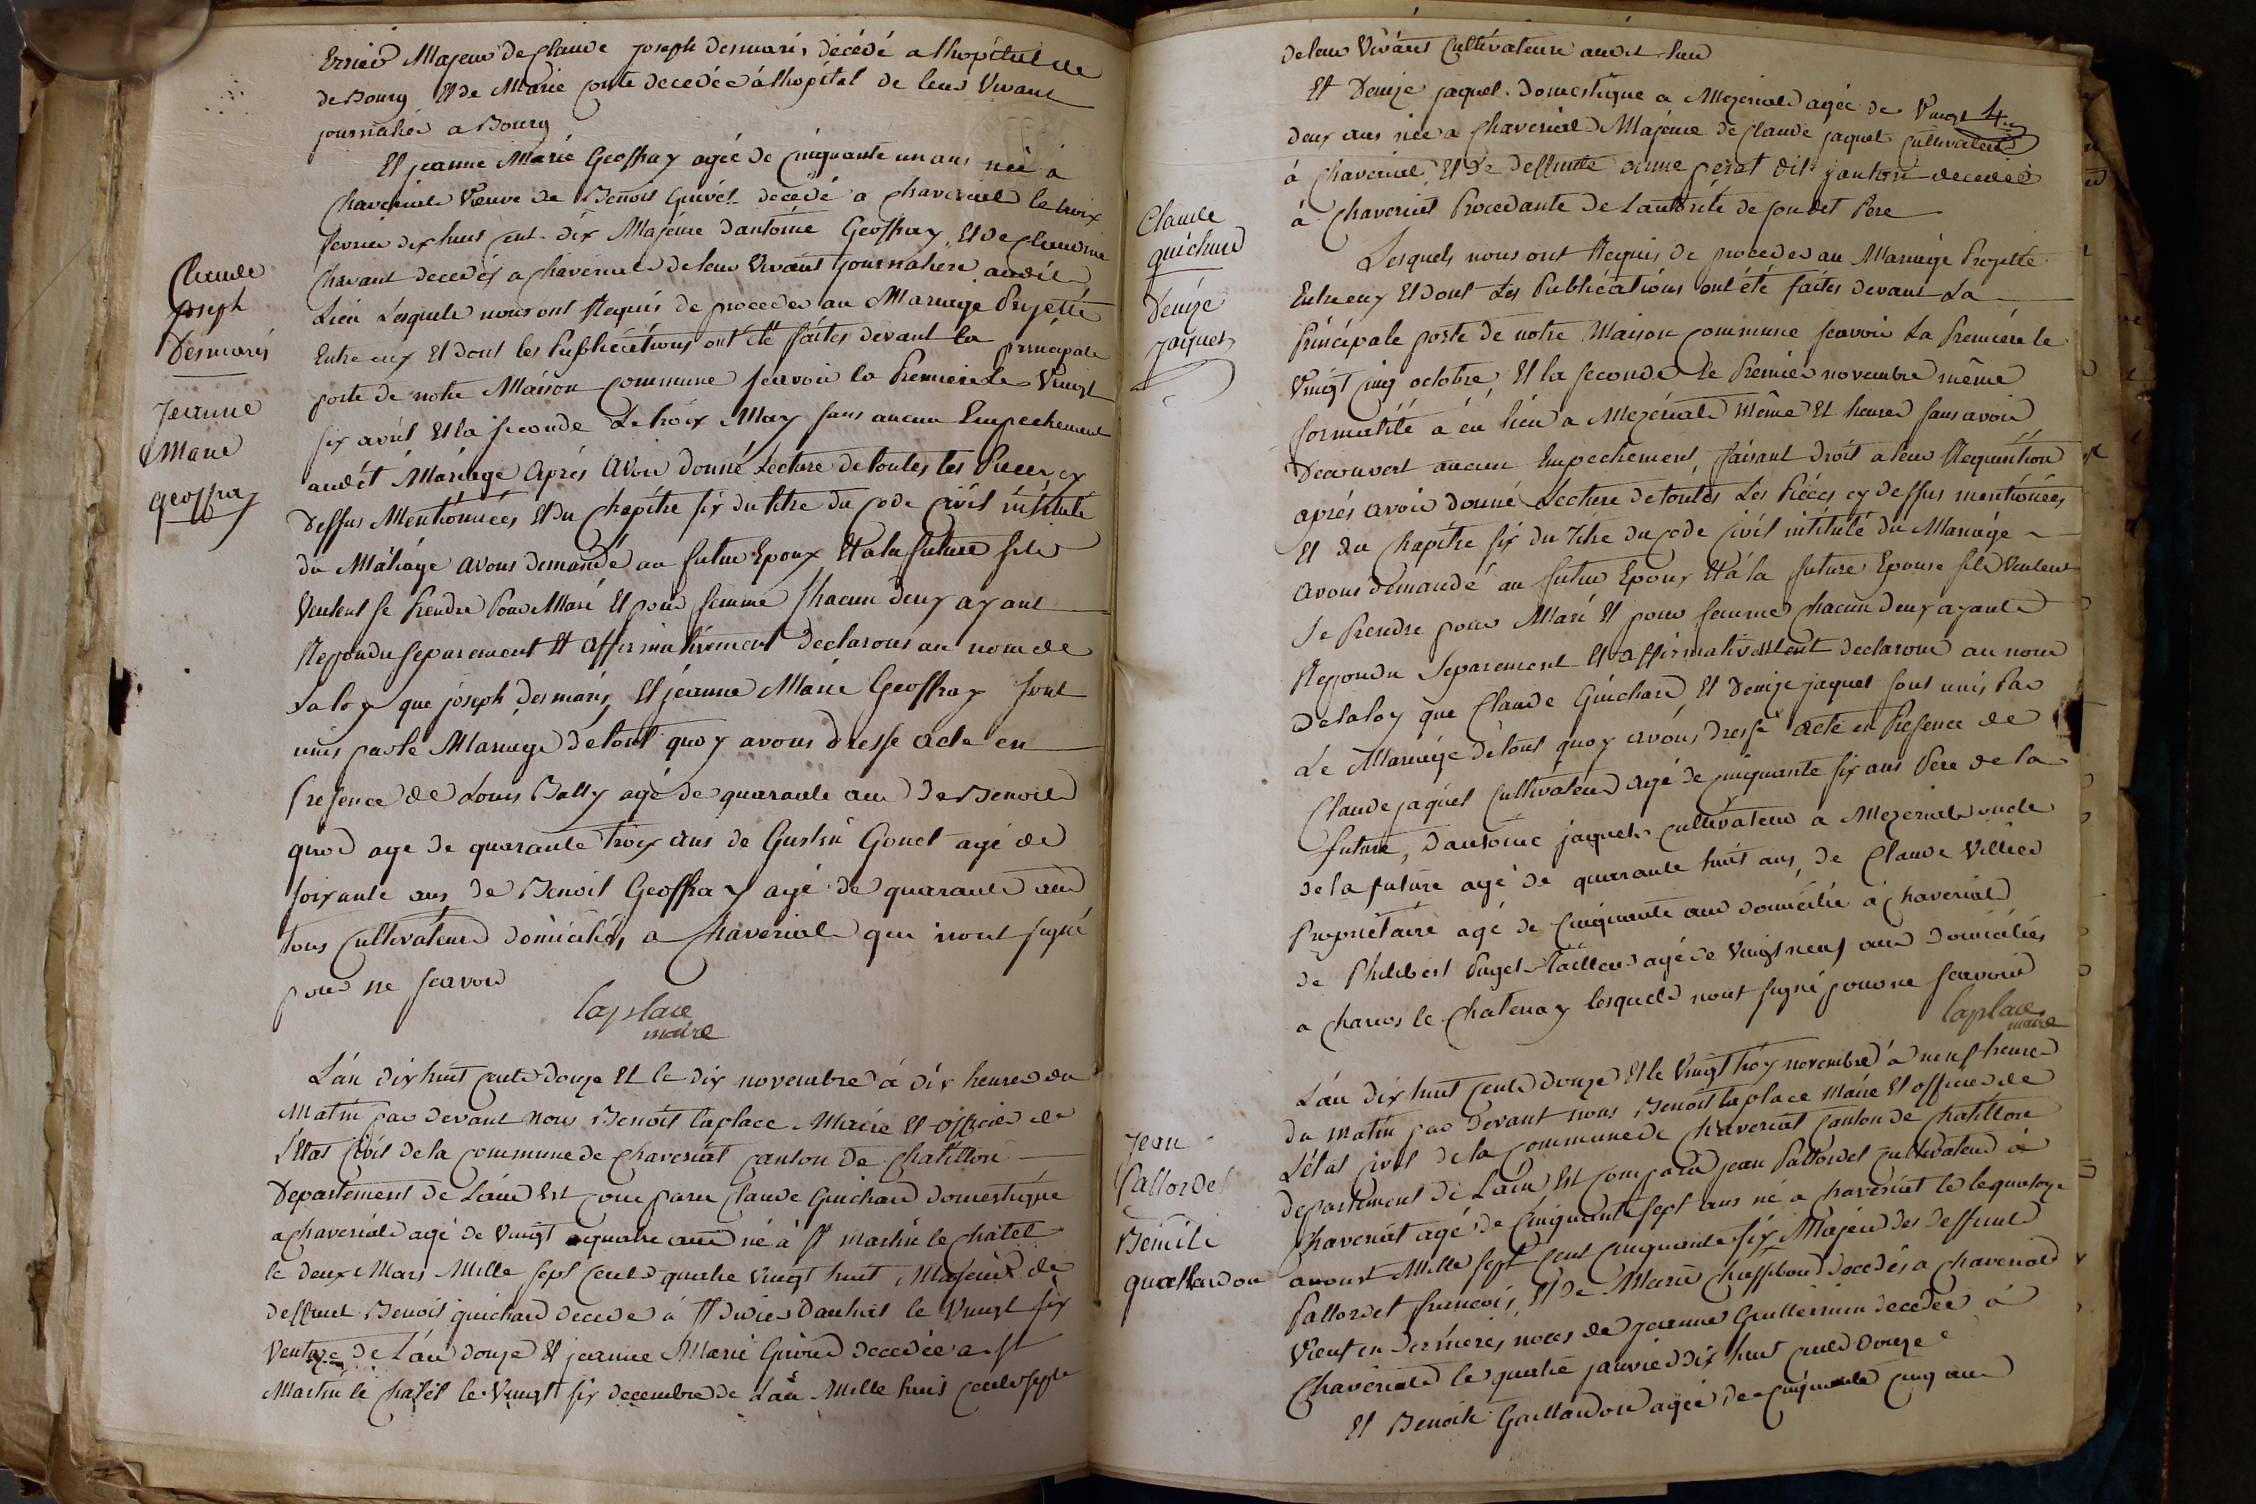 Majeur de Claude joseph desmaris décédé a lhopital de
de Bourg Et de Marie conte decedée á lhopital de leur Vivant
journalié a Bourg
Et jeanne Marie Geoffray agée de Cinquante un ans née á
Chaveriat Veuve de Benoit Guivet decédé a Chaveriat le troix
fevrier dix huit cent dix Majeure dantoine Geoffray Et de Claudine
Chavant decedés a Chaveriat de leur Vivant journaliers audit
Lieu Lesquels nous ont Requis de proceder au Mariage Projetté
Entre eux Et dont les Publications ont été faites devant la principale
porte de notre Maison commune scavoir la Premiere le Vingt
six avril Et la seconde Le troix May sans aucun Empechement
Claude
joseph
Desmaris
Jeanne
Marie
geoffray
audit Mariage Aprés Avoir donné Lecture de toutes les Pieces cy
dessus Mentionnées Et du Chapitre six du titre du Code Civil intitulé
du Mariage avons demandé au futur Epoux Et a la future sils
Veulent se Prendre Pour Mari Et pour femme Chacun deux ayant
Repondu separement Et affirmativement declarons au nom de
La loy que joseph desmaris Et jeanne Marie Geoffray sont
unis par le Mariage de tout quoy avons dressé acte en
presence de Louis Bally agé de quarante ans de Benoit
qirod age de quarante troix ans de Gustin Gonet agé de
soixante ans de Benoit Geoffray agé de quarante ans
tous Cultivateurs domiciliés a Chaveriat qui nont signé
pour ne scavoir
laplace
maire
Lán dix huit cents douze Et le dix novembre á dix heures du
Matin par devant Nous Benoit laplace Maire Et officier de
létat Civil de la commune de Chaveriat canton de Chatillon
Departement de Láin Est comparu Claude Guichard domestique
a Chaveriat agé de Vingt quatre ans né à st martin le chatel
le deux Mars Mille sept cents quatre Vingt huit Majeur de
deffunt Benoit guichard decede á st didier daussiat le Vingt six
Ventoze de Lán douze Et jeanne Marie Giroud decedée a st
Martin le Chatel le Vingt six decembre de Lán Mille huit cents sept
de leur Vivant Cultivateurs audit lieu
Et Denize jaquet domestique a Mezeriat agée de Vingt
deux ans née a Chaveriat Majeure de Claude jaquet Cultivateur
á Chaveriat Et de deffunte anne perat dit janton decedée
á Chaveriat Procedante de Lautorité de son dit Pere
Claude
guichard
Denize
jaquet
Lesquels nous ont Requis de proceder au Mariage Projetté
Entre eux Et dont Les Publications ont été faites devant La
Principale porte de notre Maison commune scavoir La Premiere le
Vingt cinq octobre Et la seconde Le Premier novembre même
formalité á eu lieu a Mezériat Même Et heures sans avoir
Decouvert aucun Empechement, faisant droit a leur Requisition
aprés avoir donné Lecture de toutes Les Piéces cy dessus mentionées
Et du Chapitre six du Titre du Code Civil intitulé du Mariage
Avons demandé au futur Epoux Et á la future Epouse sils Veulent
Se Prendre pour Mari Et pour femme chacun deux ayants
Repondu Separement Et affirmativement declarons au nom
De la loy que Claude Guichard Et Denize jaquet sont unis Par
Le Mariage de tout quoy avons dressé acte en Presence de
Claude jaquet Cultivateur agé de cinquante six ans Pere de la
future, dantoine jaquet cultivateur a Mezeriat oncle
de la future agé de quarante huit ans, de Claude Villier
Propriétaire agé de Cinquante ans domicilié á Chaveriat
de Philibert Puget Tailleur agé de Vingt neuf ans domiciliés
a Chanos le Chatenay lesquels nont signé pour ne scavoir
laplace
maire
Lán dix huit cents douze Et le Vingt troy novembre á neuf heures
du matin par devant nous Benoit laplace Maire Et officier de
Létat Civil de la commune de Chaveriat canton de Chatillon
departement de Láin Est comparu jean Pallordet cultivateur á
Jean
Pallordet
Benoite
gualliardon
Chaveriat agé de Cinquante sept ans né a Chaveriat le le quatorze
avoust Mille sept cent cinquante six Majeur des deffunts
Pallordet francois, Et de Marie decedés a Chaveriat
Vieuf en dernieres noces de jeanne Guillermin decedée á
Chaveriat le quatre janvier dix huit cents douze
Et Benoite Gaillardon agée de cinquante cinq ans